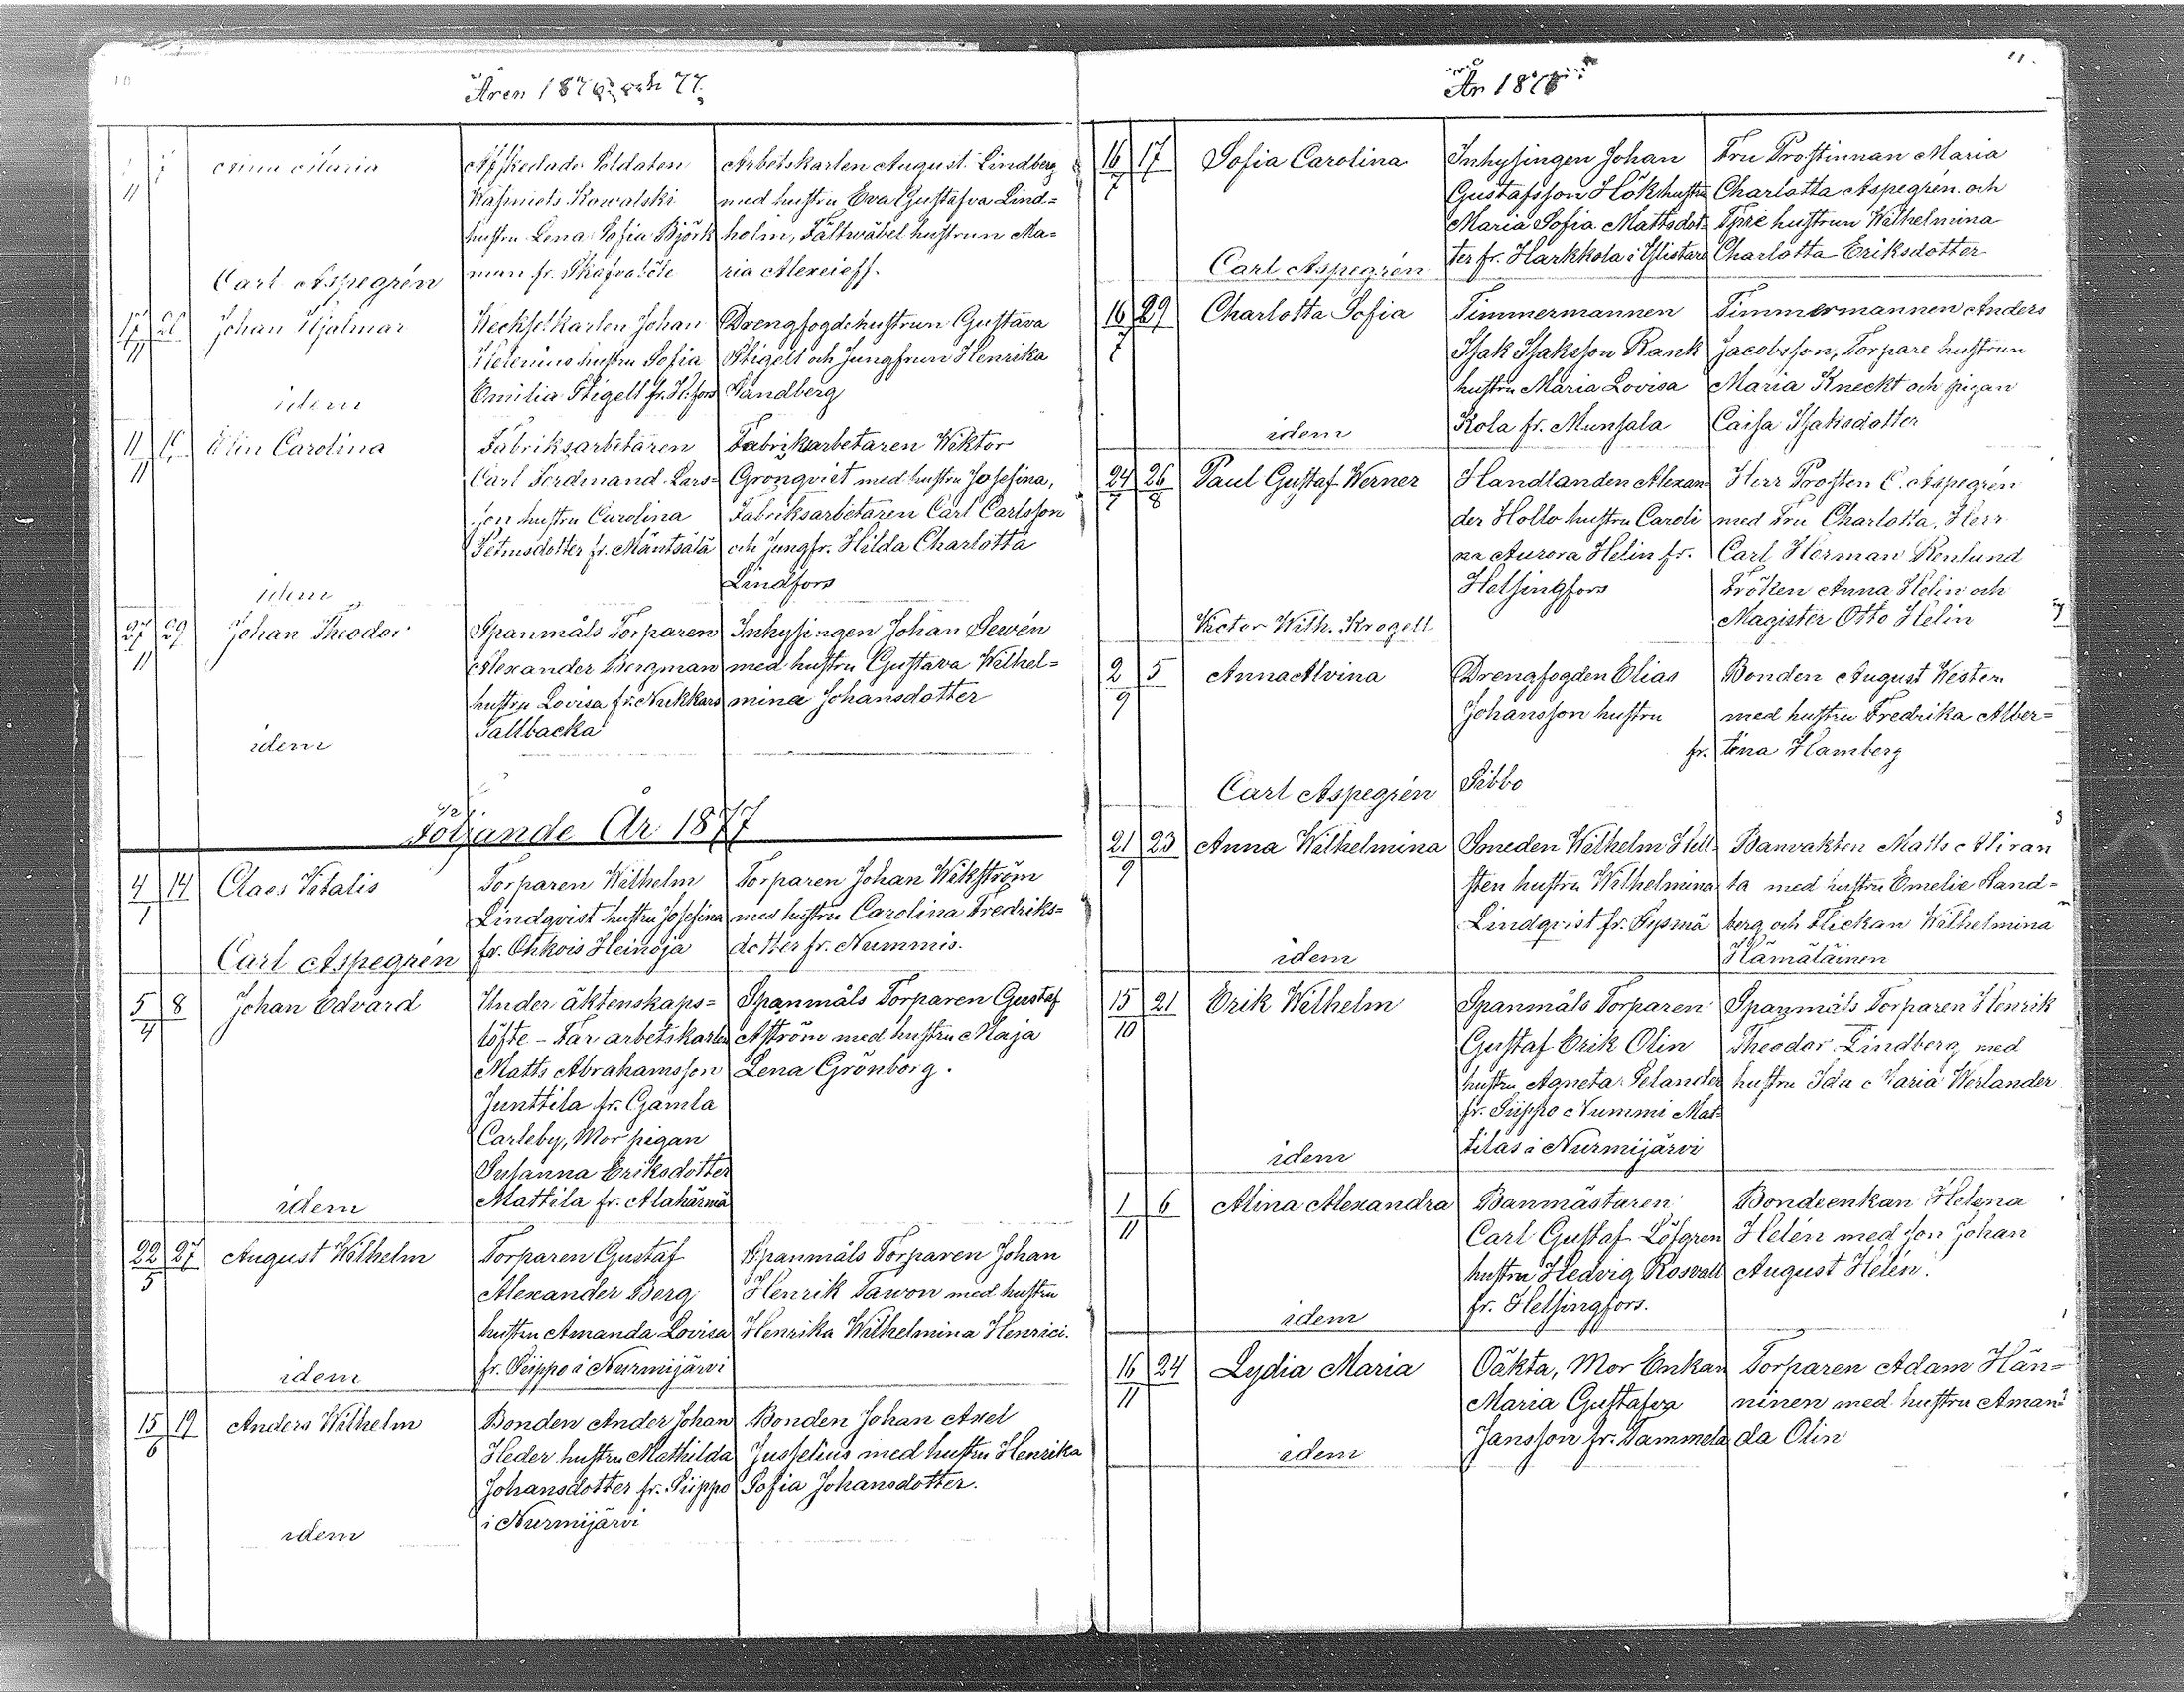 10
Åren 1876 och 77.
11
Anna Maria
Afskedade Soldaten
Kasmiels Kowalski
hustru Lena Sofia Björk
man fr.
Arbetskarlen August Lindberg
med hustru Eva Gustafva Lind=
holm, Fältwäbel hustrun Ma=
ria Alexeieff.
Carl Aspegrén
17 21
11
Johan Hjalmar
Weckselkarlen Johan
Helenius hustru Sofia
Emilia Stigell fr. H:fors
Drengfogdehustrun Gustava
Stigell och Jungfrun Henrika
Sandberg
idem
11
11
Elin Carolina
Fabriksarbetaren
Carl Ferdinand Lars=
son hustru Carolina
Petrusdotter fr. Mäntsälä
Fabriksarbetaren Wiktor
Grönqvist med hustru Josefina,
Fabriksarbetaren Carl Carlsson
och Jungfr. Hilda Charlotta
Lindfors
idem
27 29
11
Johan Theodor
Spanmåls Torparen
Alexander Bergman
hustru Lovisa fr. Nukkars
Tallbacka
Inhysingen Johan Sewén
med hustru Gustava Wilhel=
mina Johansdotter
idem
Följande År 1877
4 14
1
Claes Vitalis
Torparen Wilhelm
Lindqvist hustru Josefina
fr. Ohkois Heinoja
Torparen Johan Wikström
med hustru Carolina Fredriks=
dotter fr. Nummis.
Carl Aspegrén
5 8
4
Johan Edvard
Under äktenskaps=
löfte - Far arbetskarlen
Matts Abrahamsson
Junttila fr. Gamla
Carleby, Mor pigan
Susanna Eriksdotter
Mattila fr. Alahärmä
Spanmåls Torparen Gustaf
Åström med hustru Maja
Lena Grönborg.
idem
22 27
5
August Wilhelm
Torparen Gustaf
Alexander Berg
hustru Amanda Lovisa
fr. Siippo i Nurmijärvi
Spanmåls Torparen Johan
Henrik Tawon med hustru
Henrika Wilhelmina Henrici.
idem
15 19
6
Anders Wilhelm
Bonden Ander Johan
Heder hustru Mathilda
Johansdotter fr. Siippo
i Nurmijärvi
Bonden Johan Axel
Jusselius med hustru Henrika
Sofia Johansdotter.
idem
11.
År 1876
16 17
7
Sofia Carolina
Inhysingen Johan
Gustafsson Hök hustru
Maria Sofia Mattsdot=
ter fr. Harkkola i Ylistaro
Fru Prostinnan Maria
Charlotta Aspegrén och
hustrun Wilhelmina
Charlotta Eriksdotter
Carl Aspegrén
16 29
7
Charlotta Sofia
Timmermannen
Isak Isaksson Rank
hustru Maria Lovisa
Kola fr. Munsala
Timmermannen Anders
Jacobsson, Torpare hustrun
Maria Kneckt och pigan
Caisa Isaksdotter
idem
24 26
7 8
Paul Gustaf Werner
Handlanden Alexan=
der Hollo hustru Caroli
na Aurora Helin fr.
Helsingfors
Herr Prosten C. Aspegrén
med Fru Charlotta, Herr
Carl Herman Renlund
Fröken Anna Helin och
Magister Otto Helin
Victor Wilh. Krogell
2 5
9
Anna Alvina
Drengfogden Elias
Johansson hustru
fr.
Sibbo
Bonden August Westen
med hustru Fredrika Alber=
tina Hamberg
Carl Aspegrén
21 23
9
Anna Wilhelmina
Smeden Wilhelm Hell=
sten hustru Wilhelmina
Lindqvist fr. Sysmä
Banvakten Matts Aliran
ta med hustru Emelie Sand=
berg och Flickan Wilhelmina
Hämäläinen
idem
15 21
10
Erik Wilhelm
Spanmåls Torparen
Gustaf Erik Olin
hustru Agneta Selander
fr. Siippo Nummi Mat=
tilas i Nurmijärvi
Spanmåls Torparen Henrik
Theodor Lindberg med
hustru Ida Maria Werlander
idem
1 6
11
Alina Alexandra
Banmästaren
Carl Gustaf Löfgren
hustru Hedvig Rosvall
fr. Helsingfors.
Bondeenkan Helena
Helén med son Johan
August Helén.
idem
16 24
11
Lydia Maria
Oäkta, Mor Enkan
Maria Gustafva
Jansson fr. Tammela
Torparen Adam Hän=
ninen med hustru Aman=
da Olin
idem